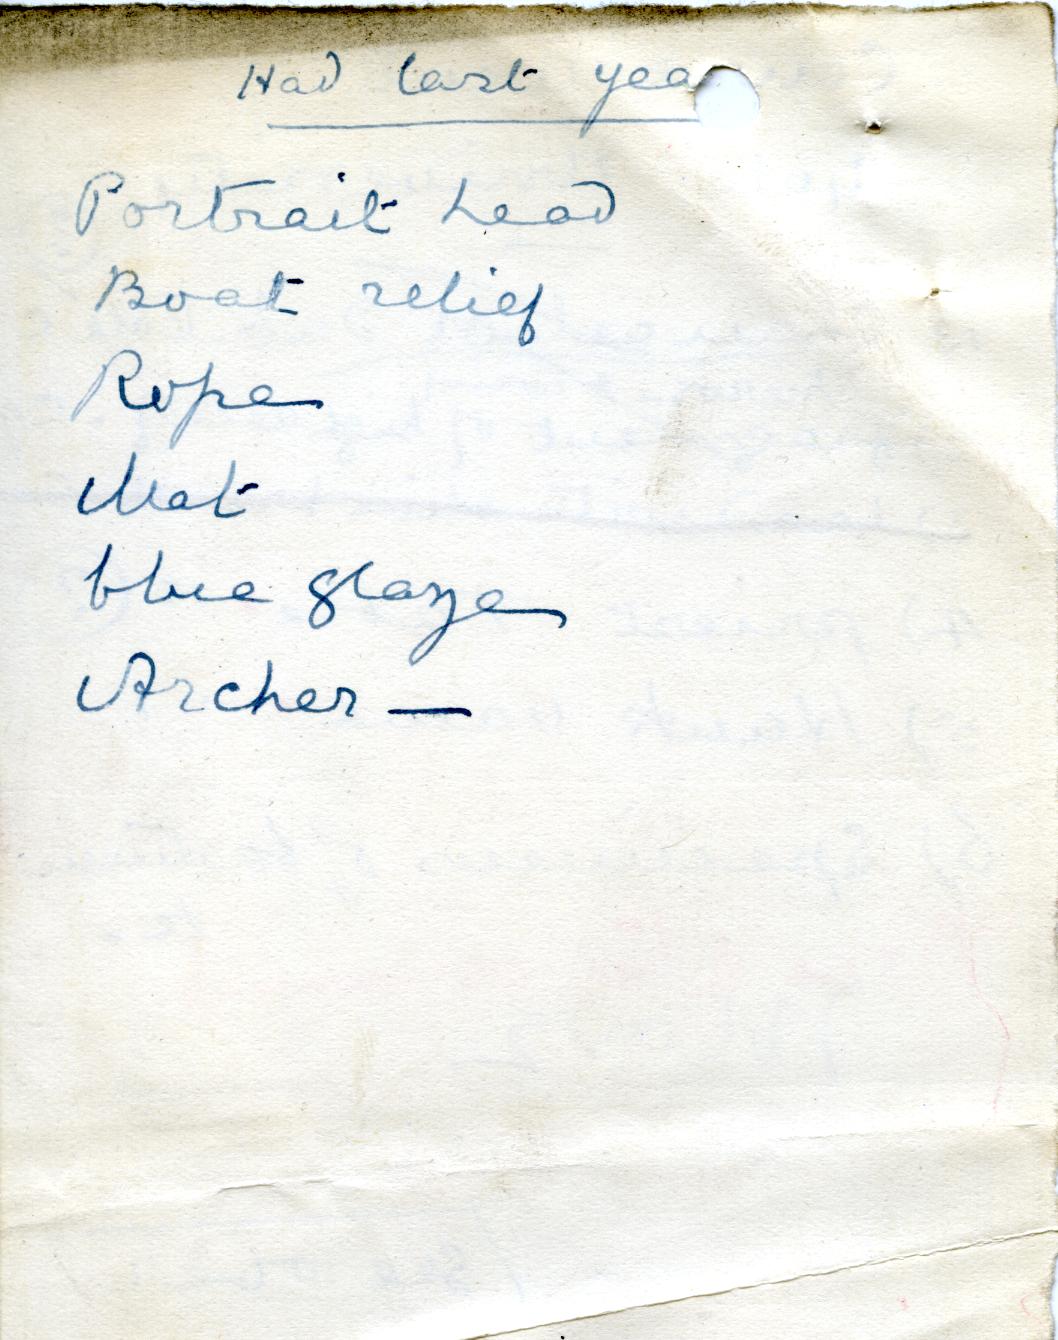 Had last yea
Portrait head
Boat relief
Rope
Mat
blue glaze
Archer —